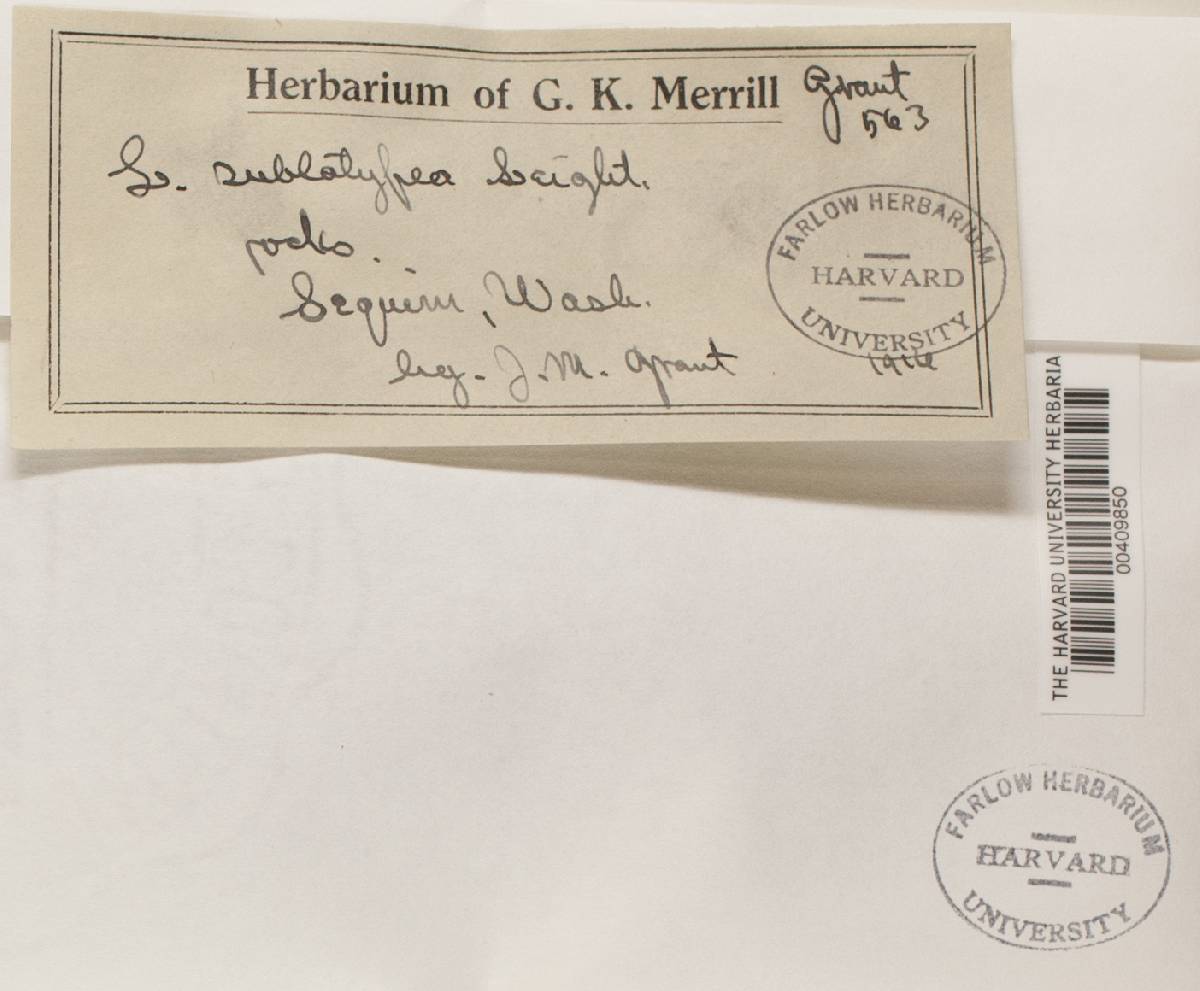 Herbarium of G. K. Merrill
Grant
563
L. sublatypea Leight.
rocks.
Sequim, Wash.
leg. J. M. Grant
1916
FARLOW HERBARIUM
HARVARD
UNIVERSITY
THE HARVARD UNIVERSITY HERBARIA
00409850
FARLOW HERBARIUM
HARVARD
UNIVERSITY